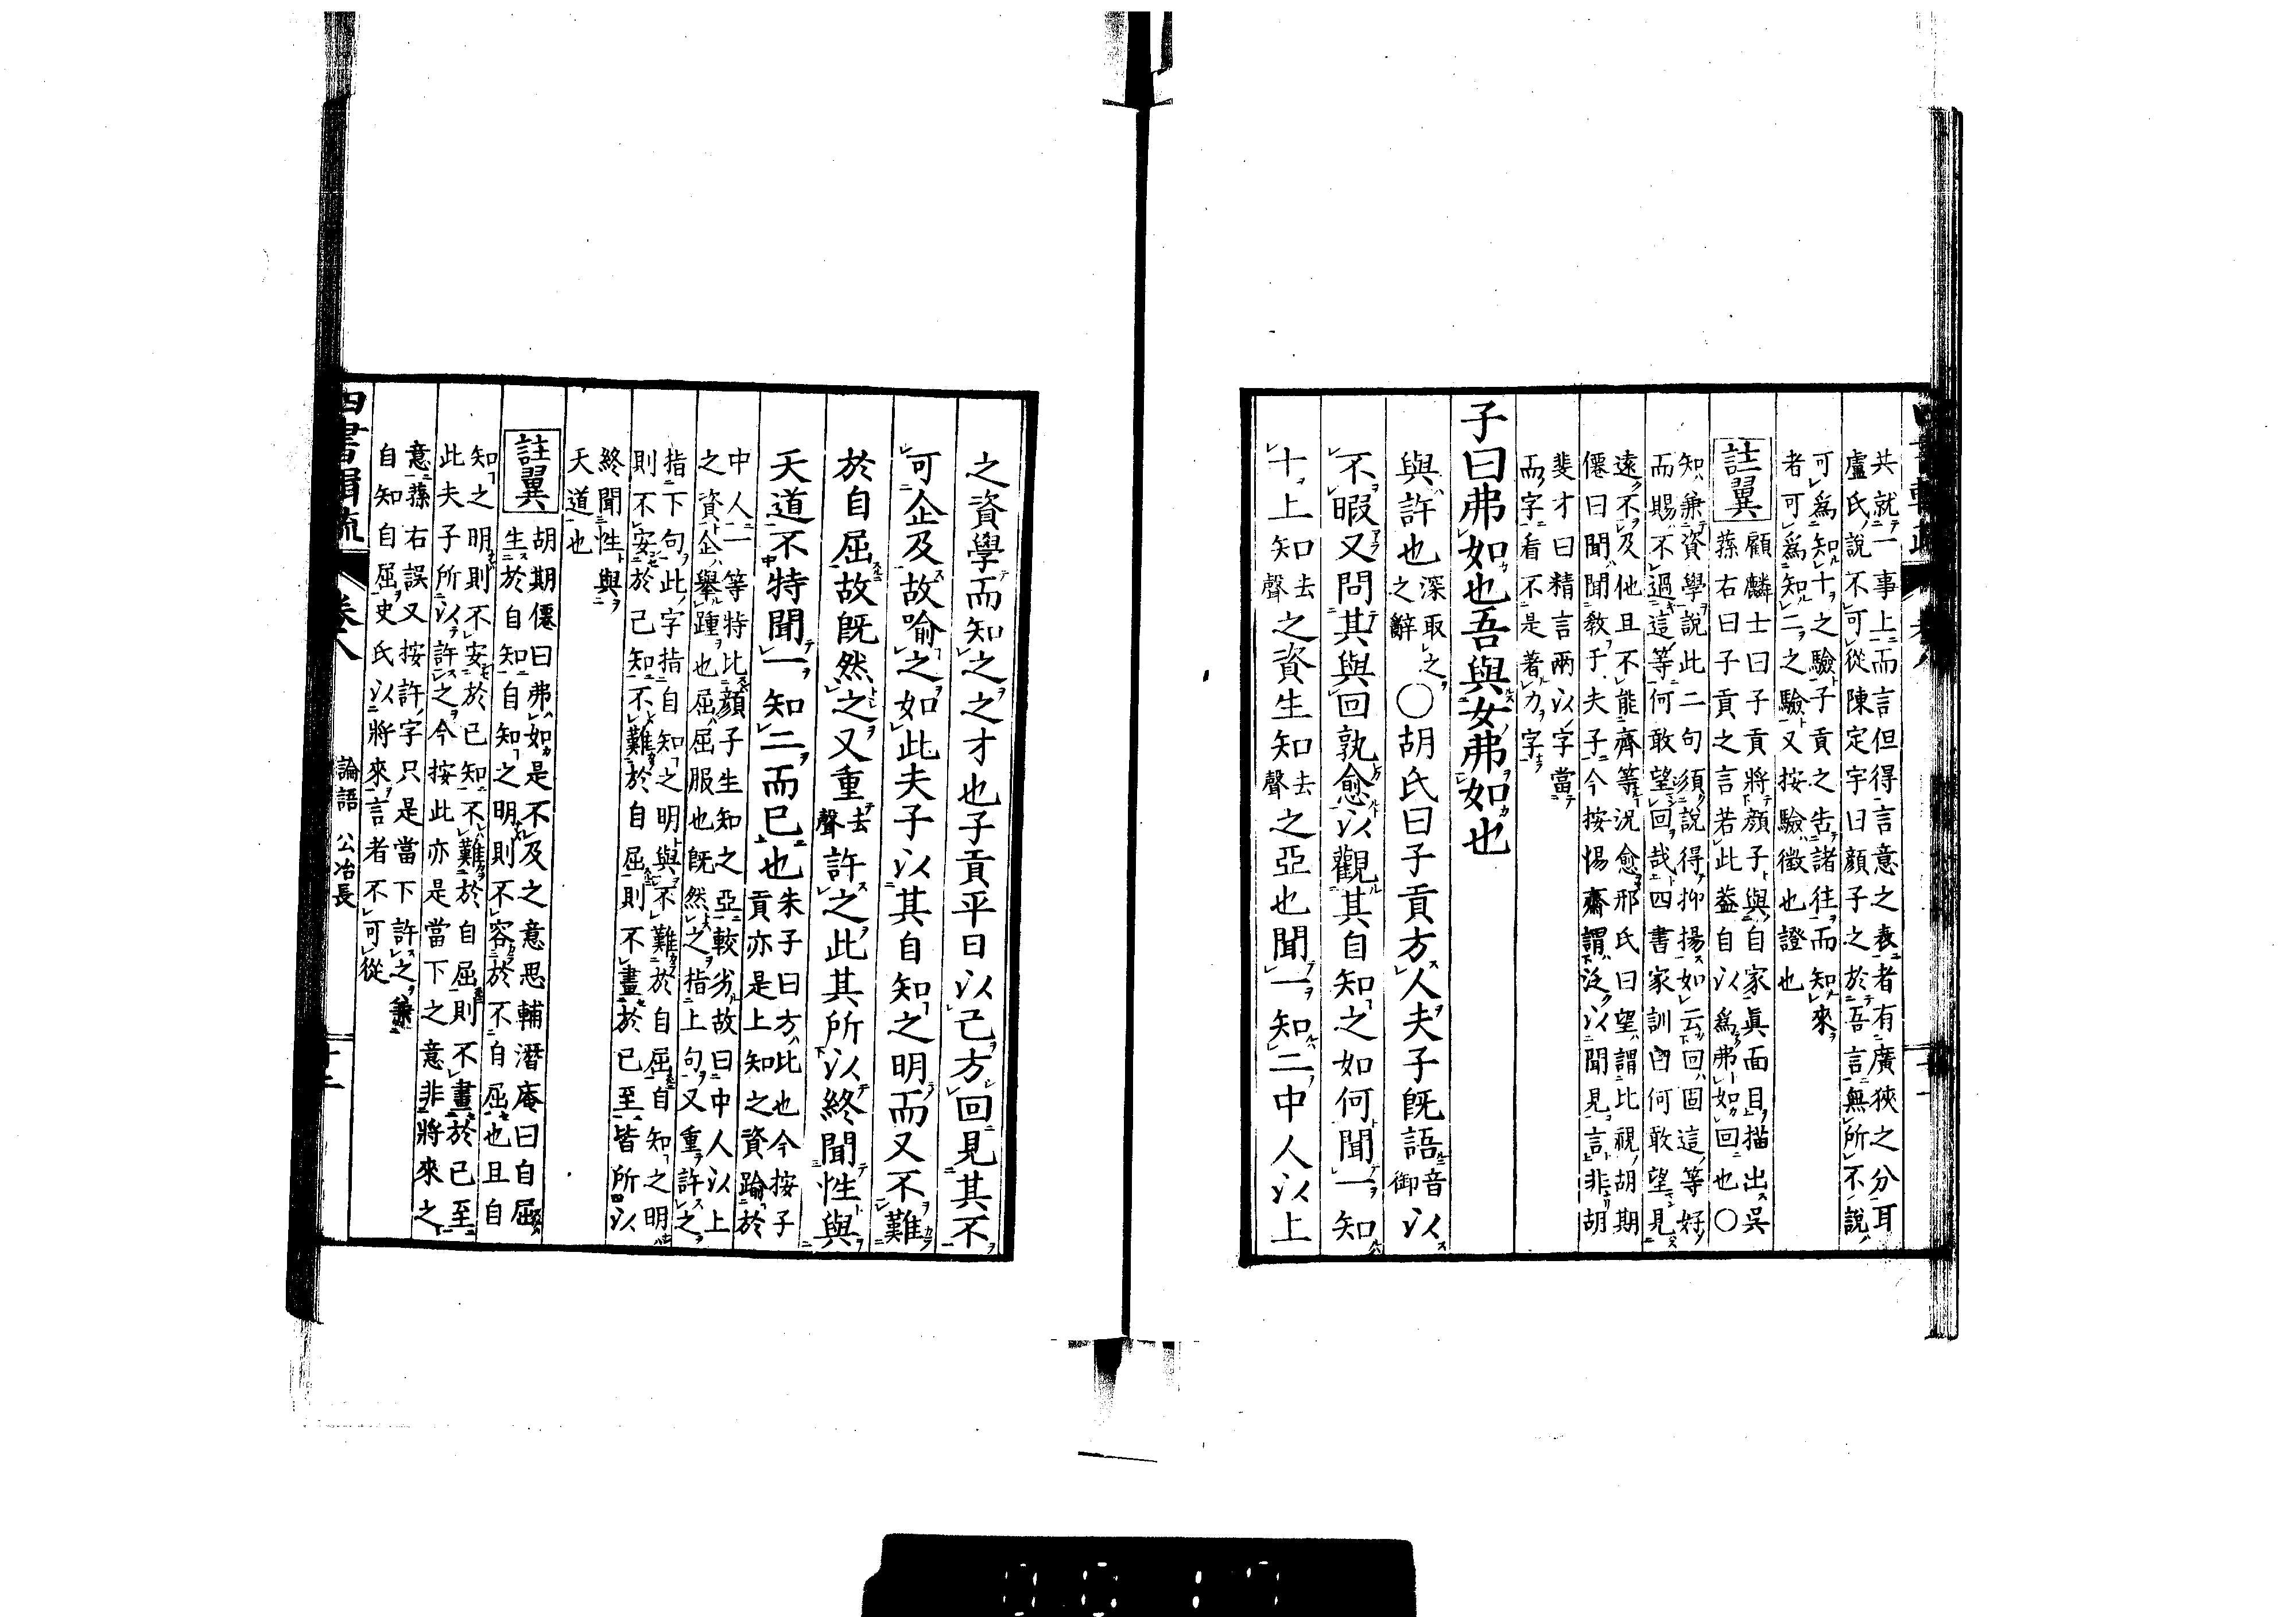 共就一事上而言但得言意之表者有廣狹之分耳
盧氏說不可從陳定宇曰顔子之於吾言無所不說
可爲知十之驗子貢之告諸往而知來
者可爲知二之驗又按驗徵也證也
註翼
顧麟士曰子貢將顔子與自家眞面目描出吳
蓀右曰子貢之言若此葢自以爲弗如回也〇
知兼資學說此二句須說得抑揚如云回固這等好
而賜不過這等何敢望回哉四書家訓曰何敢望見
遠不及他且不能齊等況愈邪氏曰望謂比視胡期
僊曰聞聞教于夫子今按惕齋謂泛以聞見言非胡
斐才曰精言兩以字當
而字看不是著力字
子曰弗如也吾與女弗如也
與許也
深取之
之辭
〇胡氏曰子貢方人夫子既語
音
御
以
不暇又問其與回孰愈以觀其自知之如何聞一知
十上知
去
聲
之資生知
去
聲
之亞也聞一知二中人以上
之資學而知之之才也子貢平日以己方回見其不
可企及故喻之如此夫子以其自知之明而又不難
於自屈故既然之又重
去
聲
許之此其所以終聞性與
天道不特聞一知二而已也
朱子曰方比也今按子
貢亦是上知之資踰於
中人一等特比顔子生知之亞較劣故曰中人以上
之資企舉踵也屈屈服也既然之指上句又重許之
指下句此字指自知之明與不難於自屈自知之明
則不安於己知不難於自屈則不畫於已至皆所以
終聞性與
天道也
註翼
胡期僊曰弗如是不及之意思輔潛庵曰自屈
生於自知自知之明則不容於不自屈也且自
知之明則不安於已知不難於自屈則不畫於已至
此夫子所以許之今按此亦是當下之意非將來之
意蓀右誤又按許字只是當下許之兼
自知自屈史氏以將來言者不可從
四書輯疏
卷八
論語 公冶長
十二